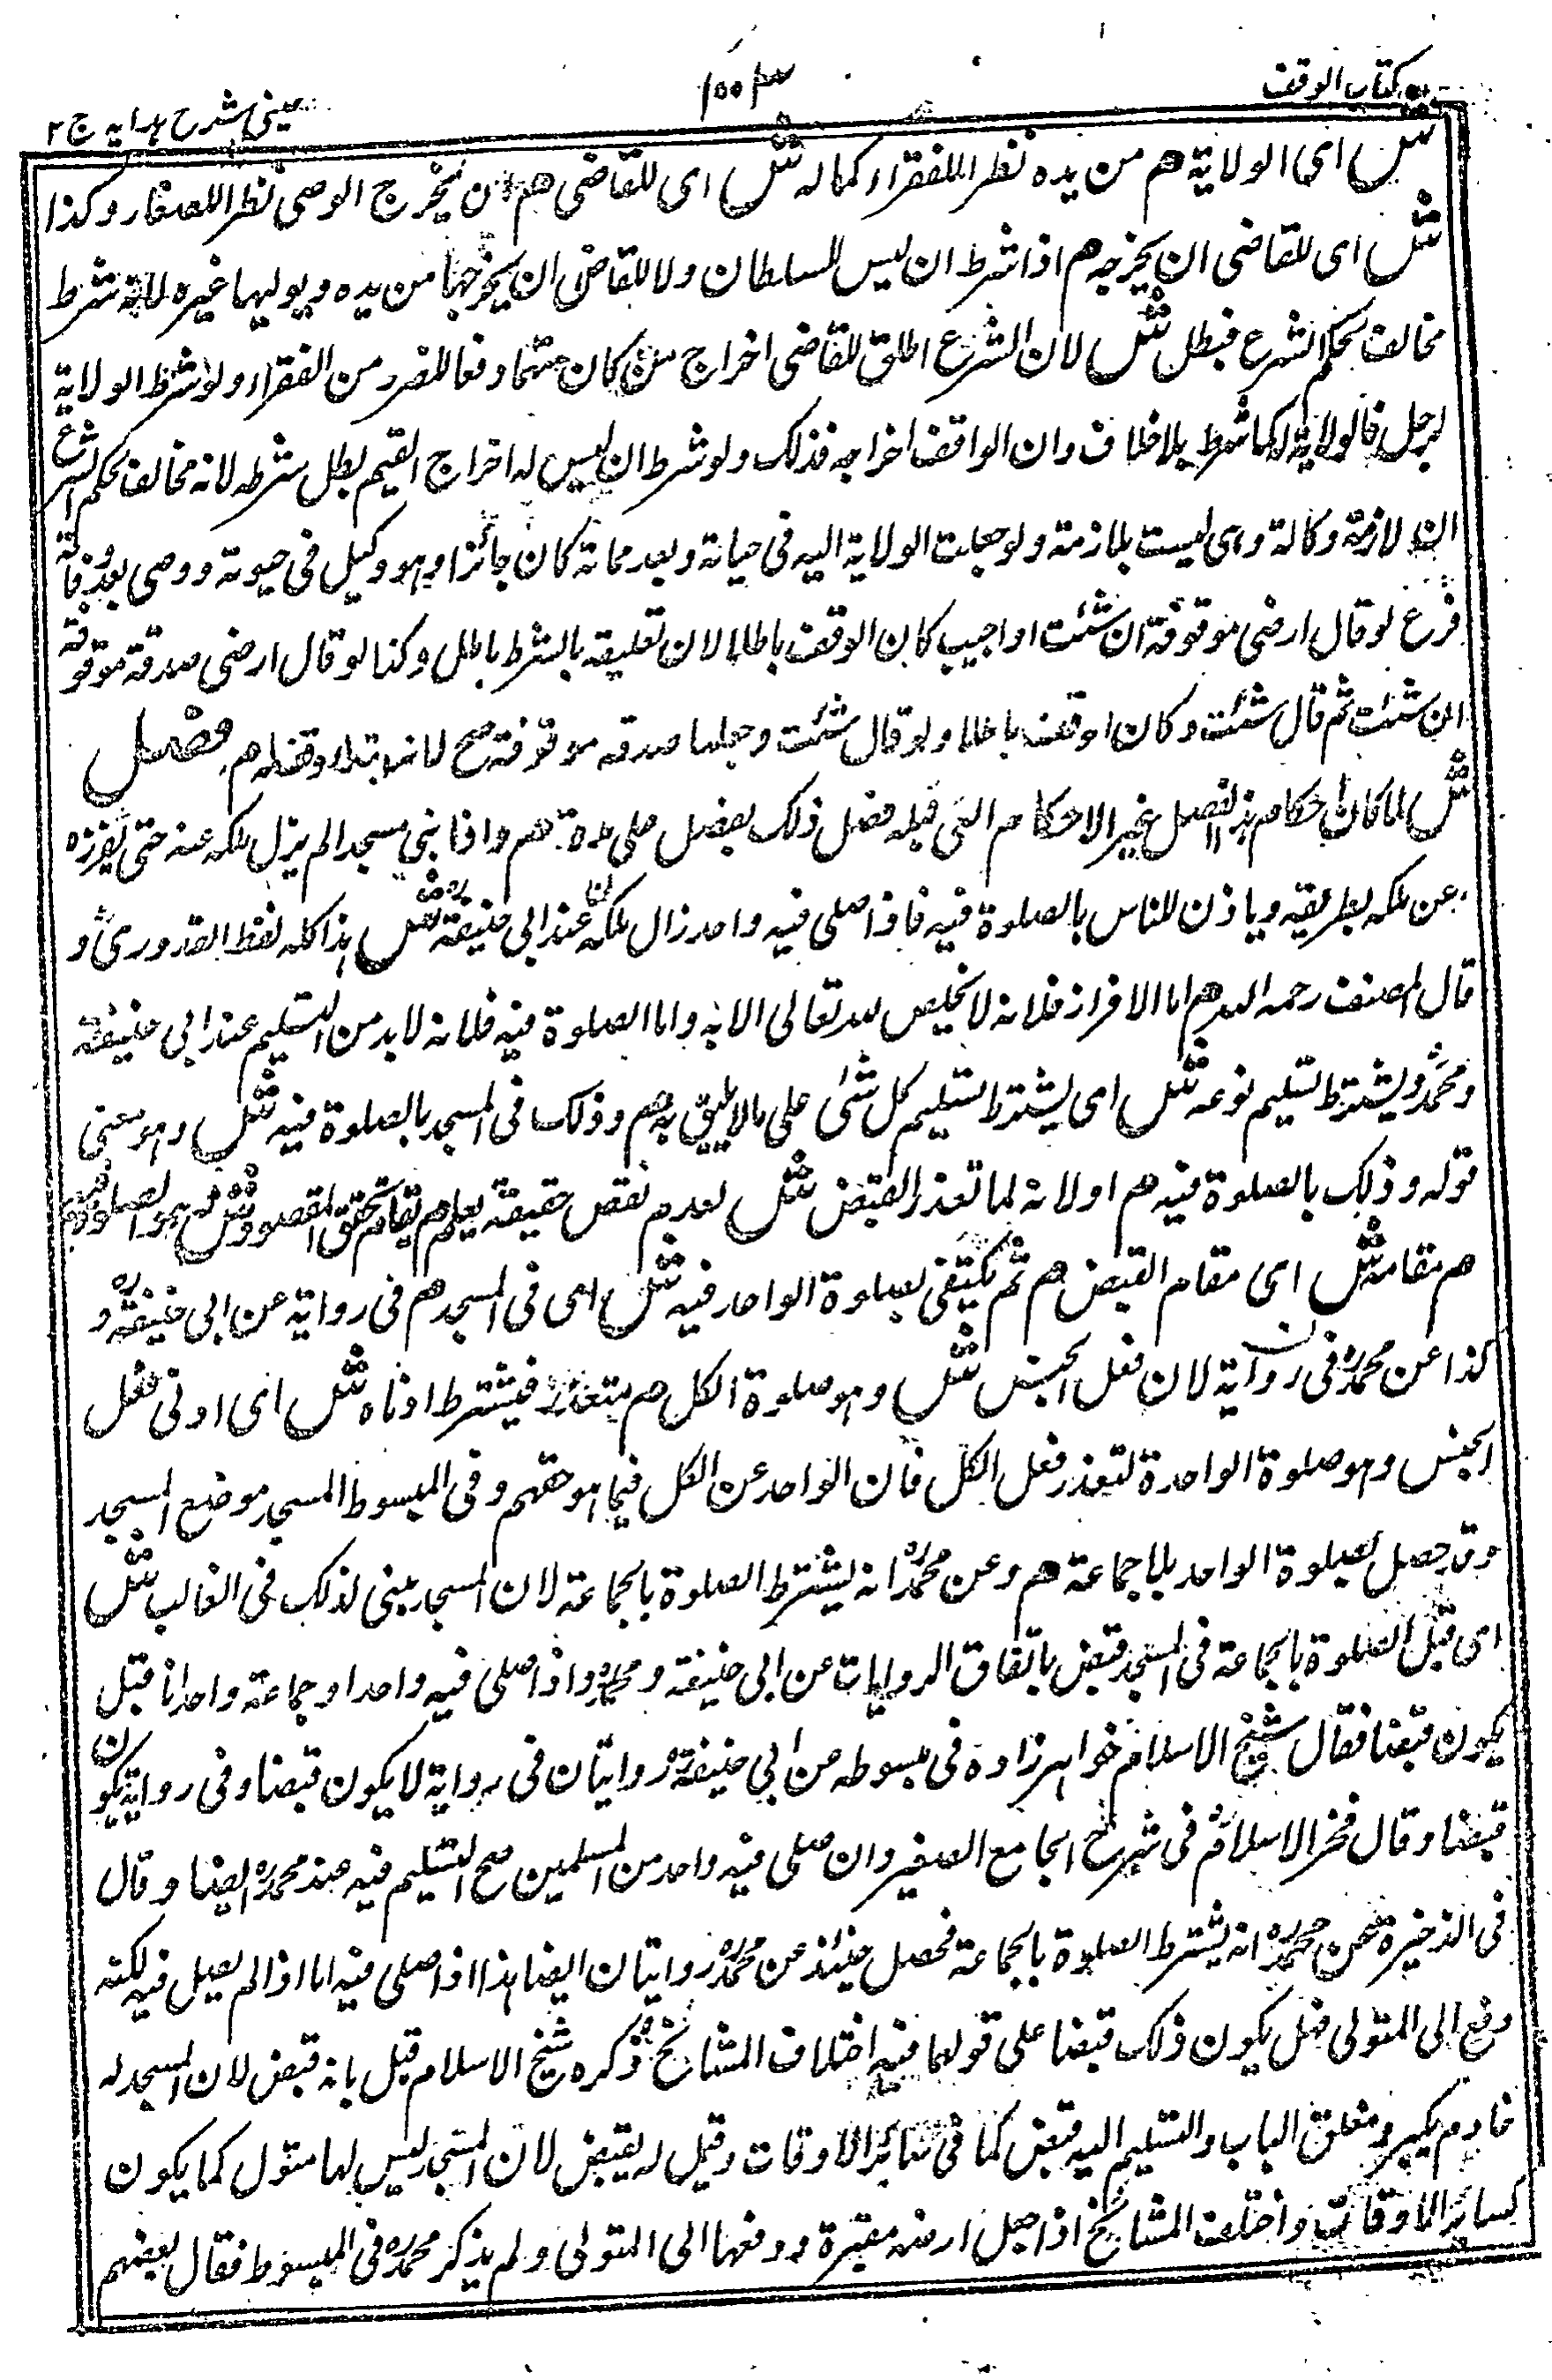 كتاب الوقف
١٠٠٣
عينى شرح هدايه ج ٢
ش اى الولاية هم من يده نظرا للفقراء كما له ش اى للقاضى هم ان يخرج الوصى نظرا للصغار وكذا
ش اى للقاضى ان يخرجه هم اذا شرط ان ليس للسلطان ولا للقاضى ان يخرجها من يده ويوليها غيره لانه شرط
مخالف لحكم الشرع فبطل ش لان الشرع اطلق للقاضى اخراج من كان متهما دفعا للضرر من الفقراء ولو شرط الولاية
لرجل فالولاية له كما شرط بلا خلاف وان الواقف اخراجه فذلك ولو شرط ان ليس له اخراج القيم بطل شرطه لانه مخالف لحكم الشرع
لان لازمة وكالة وهى ليست بلازمة ولو جعلت الولاية اليه فى حياته وبعد مماته كان جائزا وهو وكيل فى حيوته ووصى بعد وفاته
فرع لو قال ارضى موقوفة ان شئت او اجيب كان الوقف باطلا لان تعليقه بالشرط باطل وكذا لو قال ارضى صدقة موقوفة
ان شئت ثم قال شئت وكان اوقف باطلا ولو قال شئت وجعلها صدقه موقوفة صح لانه ابتداء وقف له هم فصل
ش لما كان احكام هذا الفصل غير الاحكام التى قبله فصل ذلك بفصل على حدة هم واذا بنى مسجدا لم يزل ملكه عنه حتى يفرزه
عن ملكه بطريقه وياذن للناس بالصلوة فيه فاذا صلى فيه واحد زال ملكه عند ابى حنيفة ش هذا كله لفظ القدورى و
قال المصنف رحمه الله هم اما الافراز فلانه لا يخلص لله تعالى الا به واما الصلوة فيه فلانه لا بد من التسليم عند ابى حنيفة
ومحمد ويشترط تسليم نوعه ش اى يشترط تسليم كل شئ على ما لا يليق به هم وذلك فى المسجد بالصلوة فيه ش وهو معنى
قوله وذلك بالصلوة فيه هم او لانه لما تعذر القبض ش لعدم نقص حقيقة يعلم هم يقام تحقق المقصود ش هو الصلوة فيه
هم مقامه ش اى مقام القبض هم ثم يكتفى بصلوة الواحد فيه ش اى فى المسجد هم فى رواية عن ابى حنيفة و
كذا عن محمد فى رواية لان فعل الجنس ش وهو صلوة الكل هم متعذر فيشترط ادناه ش اى ادنى فعل
الجنس وهو صلوة الواحدة لتعذر فعل الكل فان الواحد عن الكل فيما هو حقهم وفى المبسوط المسجد موضع المسجد
وقد حصل بصلوة الواحد بلا جماعة هم وعن محمد انه يشترط الصلوة بالجماعة لان المسجد يبنى لذلك فى الغالب ش
اى قبل الصلوة بالجماعة فى المسجد قبض باتفاق الروايات عن ابى حنيفة ومحمد واذا صلى فيه واحد او جماعة واحدانا قبل
يكون قبضا فقال شيخ الاسلام خواهر زاده فى مبسوطه من ابى حنيفة روايتان فى رواية لا يكون قبضا وفى رواية يكون
قبضا وقال فخر الاسلام فى شرح الجامع الصغير وان صلى فيه واحد من المسلمين صح التسليم فيه عند محمد ايضا وقال
فى الذخيرة عن محمد انه يشترط الصلوة بالجماعة فحصل حينئذ عن محمد روايتان ايضا هذا اذا صلى فيه اما اذا لم يصل فيه لكنه
دفع الى المتولى فهل يكون ذلك قبضا على قولهما فيه اختلاف المشائخ ذكره شيخ الاسلام قبل بانه قبض لان المسجد له
خادم يكبر ومغلق الباب والتسليم اليه قبض كما فى سائر الاوقات وقيل لا يقبض لان المسجد ليس لها متول كما يكون
كسائر الاوقات واختلف المشائخ اذا جعل ارضه مقبرة ودفعها الى المتولى ولم يذكر محمد فى المبسوط فقال بعضهم